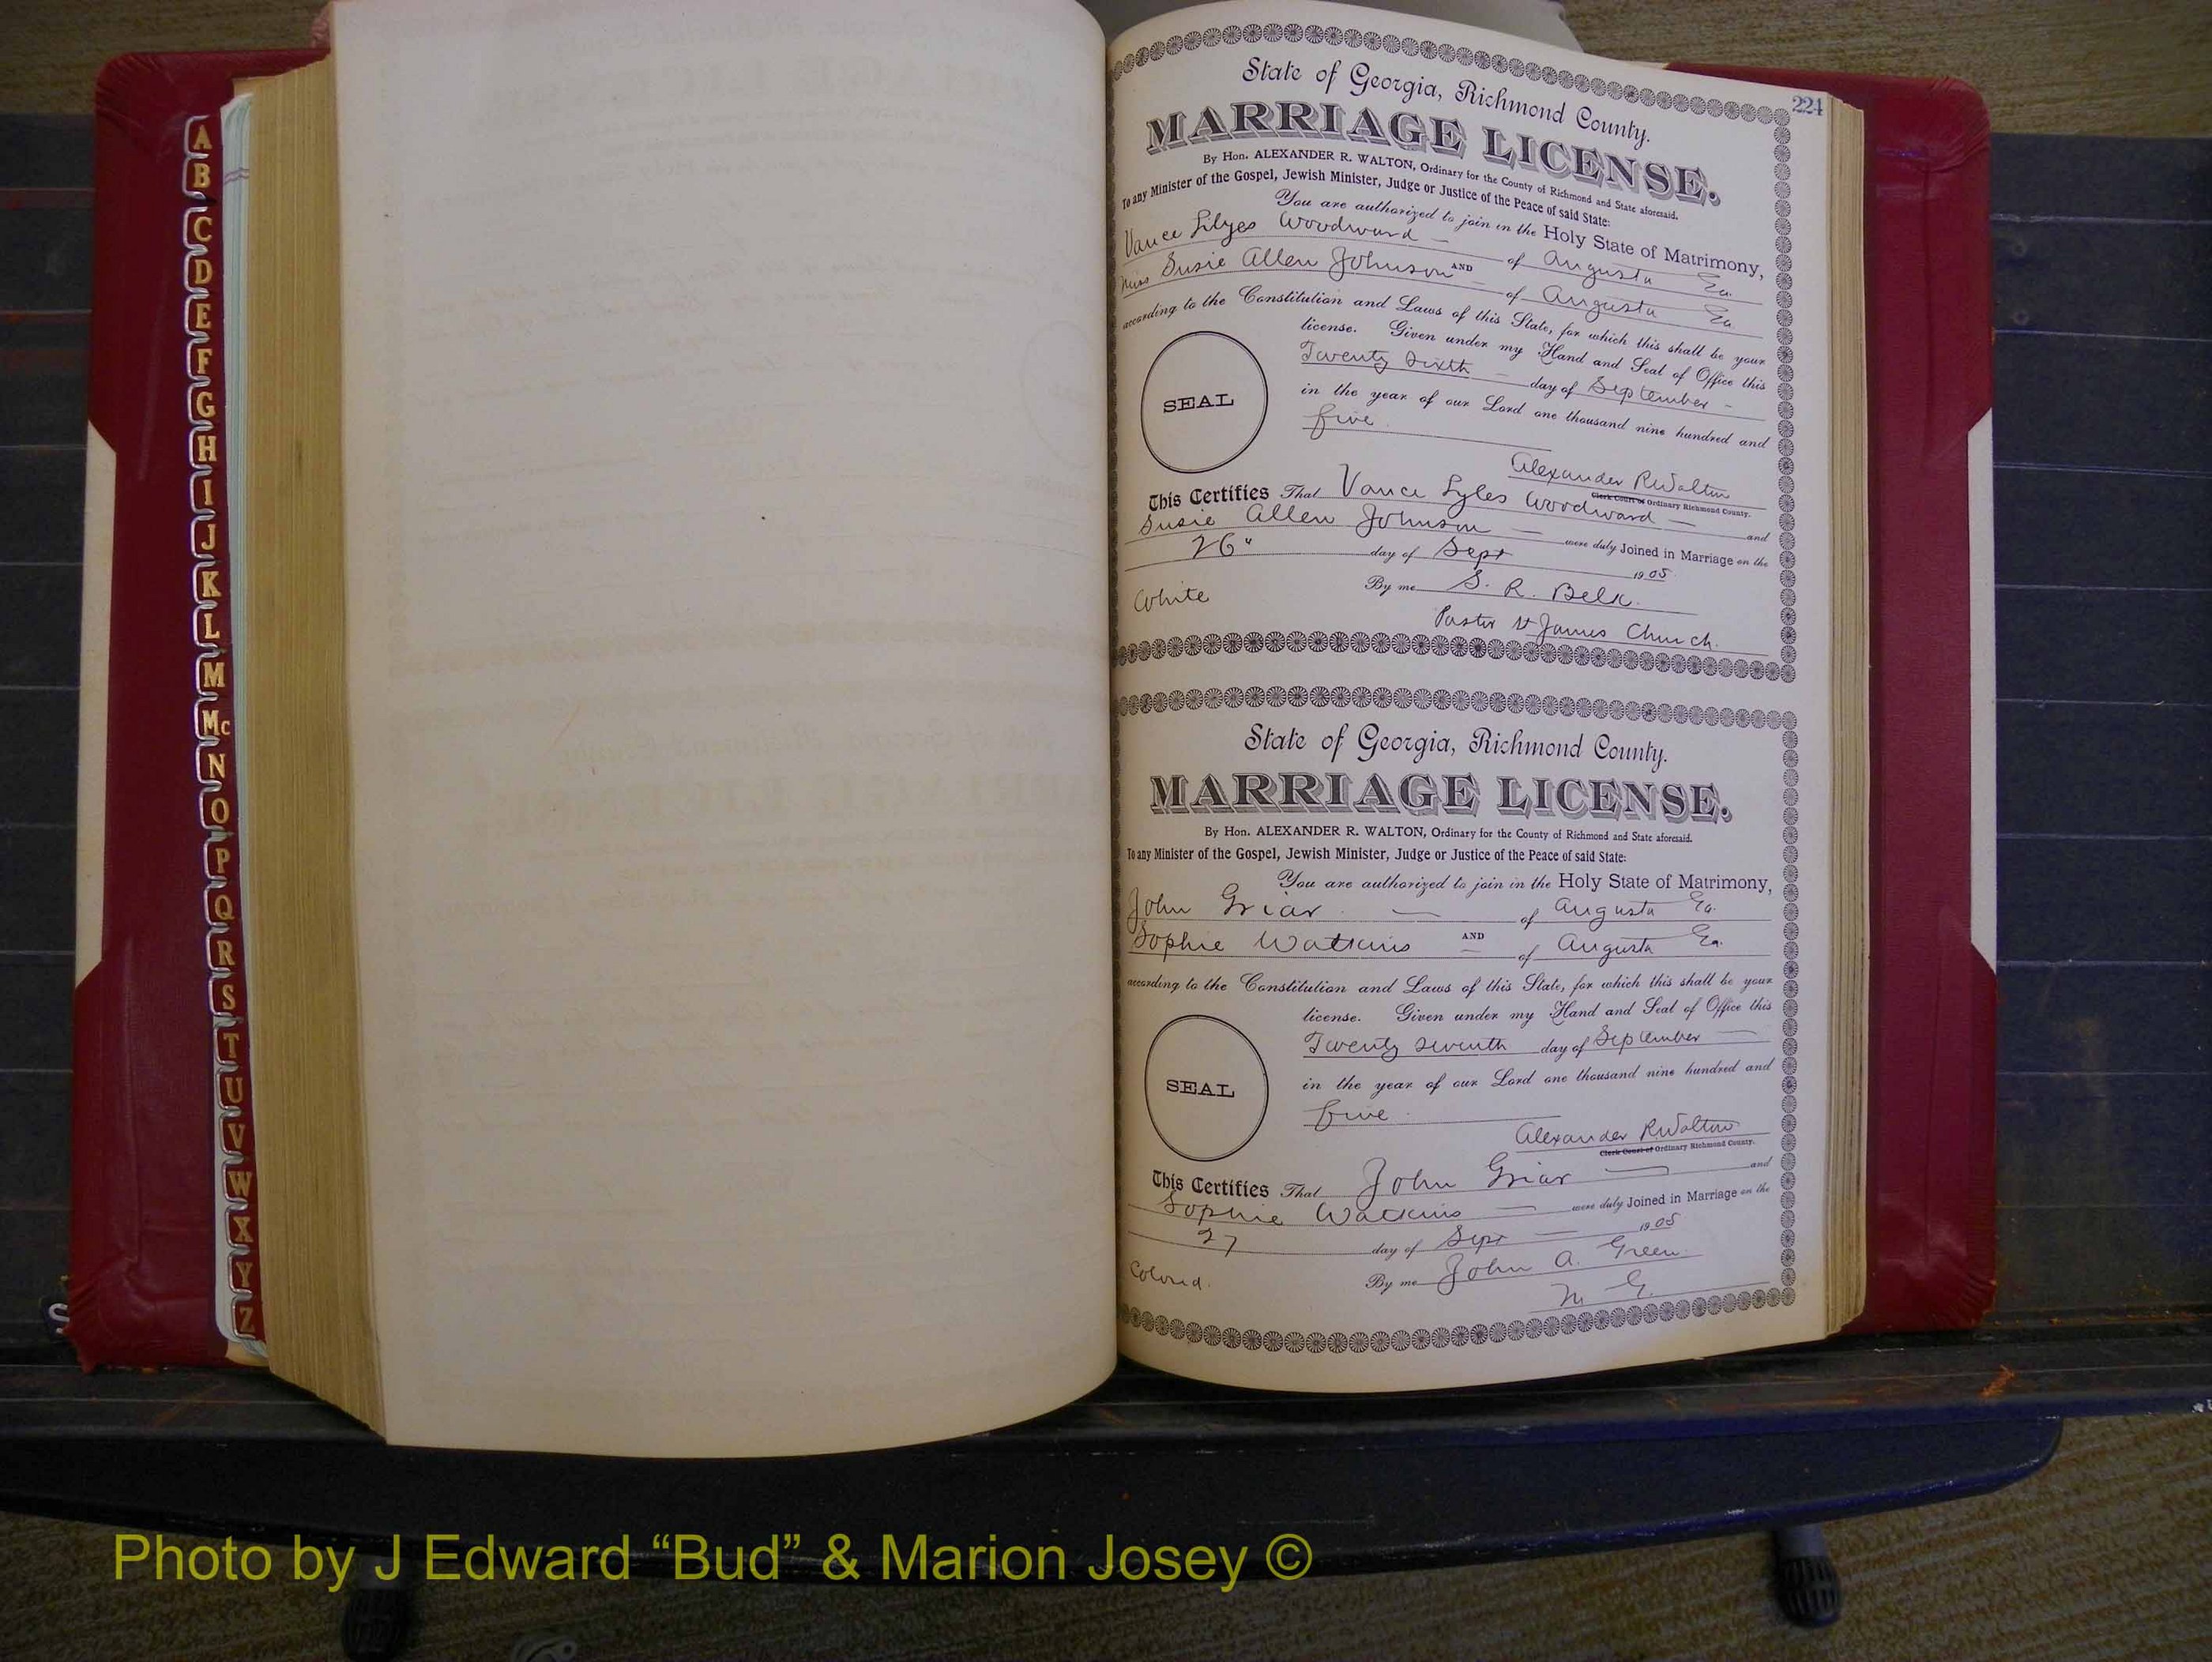 A
B
C
D
E
F
G
H
I
J
K
L
M
Mc
N
O
P
Q
R
S
T
U
V
W
X
Y
Z
224
State of Georgia, Richmond County.
MARRIAGE LICENSE.
By Hon. ALEXANDER R. WALTON, Ordinary for the County of Richmond and State aforesaid.
To any Minister of the Gospel, Jewish Minister, Judge or Justice of the Peace of said State:
You are authorized to join in the Holy State of Matrimony,
Vance Lilyes Woodward of Augusta Ga.
AND
Miss Susie Allen Johnson of Augusta Ga.
according to the Constitution and Laws of this State, for which this shall be your
license. Given under my Hand and Seal of Office this
Twenty Sixth day of September
in the year of our Lord one thousand nine hundred and
five.
SEAL
Alexander R Walton
Clerk Court of Ordinary Richmond County.
This Certifies That Vance Lyles Woodward and
Susie Allen Johnson were duly Joined in Marriage on the
26" day of Sept 1905
White By me S. R. Belk.
Pastor St James Church.
State of Georgia, Richmond County.
MARRIAGE LICENSE.
By Hon. ALEXANDER R. WALTON, Ordinary for the County of Richmond and State aforesaid.
To any Minister of the Gospel, Jewish Minister, Judge or Justice of the Peace of said State:
You are authorized to join in the Holy State of Matrimony,
John Griar of Augusta Ga.
AND
Sophie Watkins of Augusta Ga.
according to the Constitution and Laws of this State, for which this shall be your
license. Given under my Hand and Seal of Office this
Twenty Seventh day of September
in the year of our Lord one thousand nine hundred and
five.
SEAL
Alexander R Walton
Clerk Court of Ordinary Richmond County.
This Certifies That John Griar and
Sophie Watkins were duly Joined in Marriage on the
27 day of Sept 1905
Colored. By me John A. Green
M G.
Photo by J Edward “Bud” & Marion Josey ©